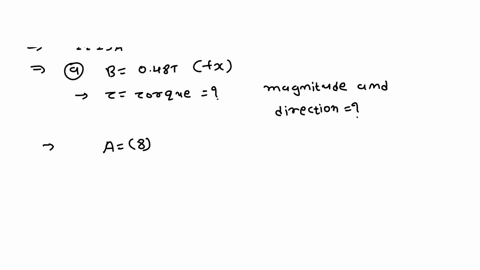 ⇒ ⓐ B = 0.48T (+x)
→ τ = Torque = ?
magnitude and
direction = ?
→ A = (8)